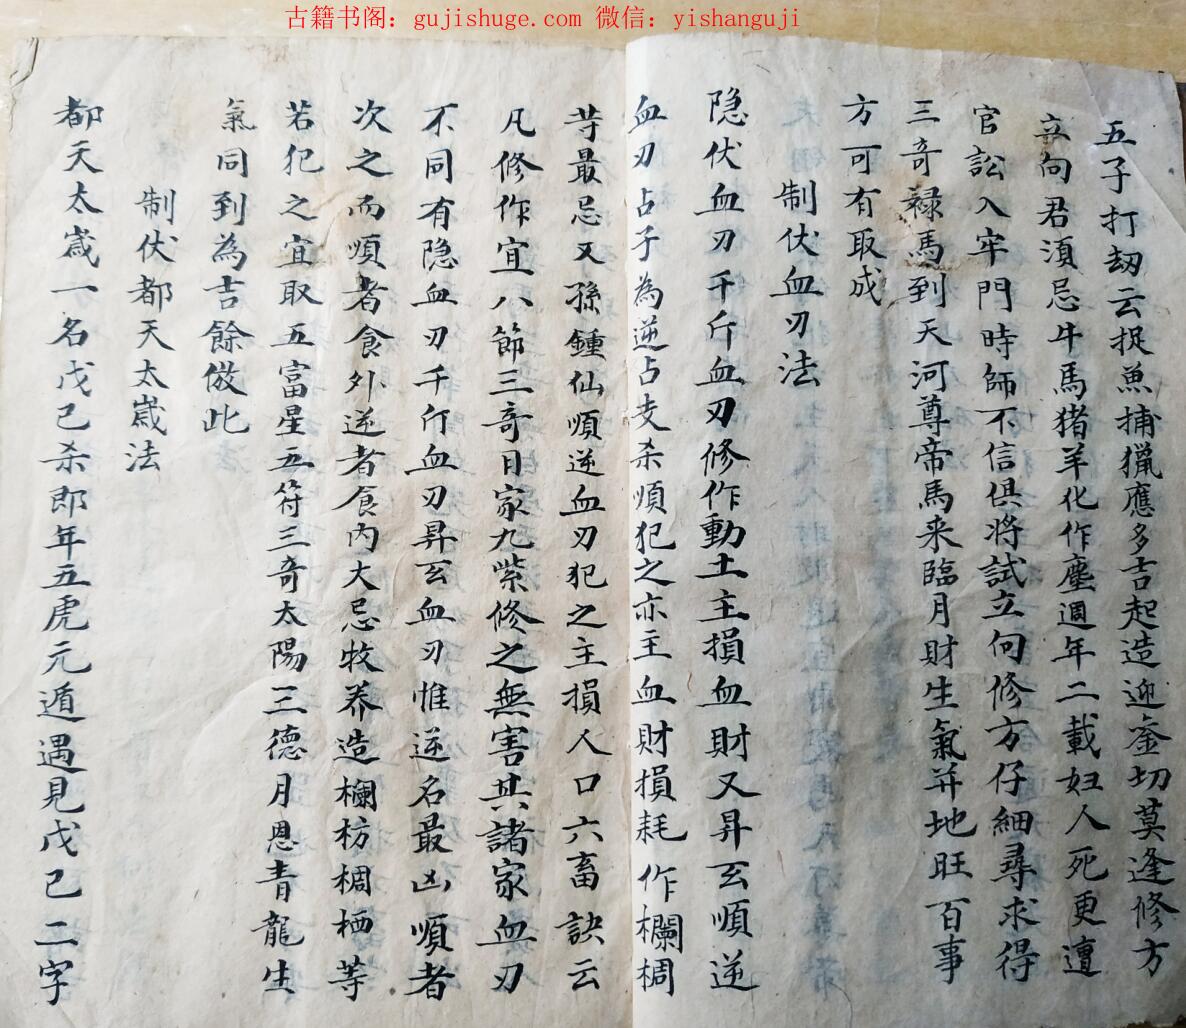 古籍书阁：gujishuge.com 微信：yishanguji
五子打劫云捉魚捕獵應多吉起造迎釜切莫逢修方
立向君須忌牛馬猪羊化作塵週年二載妇人死更遭
官訟入牢門時師不信俱將試立向修方仔細尋求得
三奇禄馬到天河尊帝馬来臨月財生氣并地旺百事
方可有取成
制伏血刃法
隐伏血刃千斤血刃修作動土主損血財又昇玄順逆
血刃占子為逆占支杀順犯之亦主血財損耗作欄椆
苐最忌又孫鍾仙順逆血刃犯之主損人口六畜訣云
凡修作宜八節三奇日家九紫修之無害其諸家血刃
不同有隐血刃千斤血刃昇玄血刃惟逆名最凶順者
次之而順者食外逆者食内大忌牧养造欄枋椆栖等
若犯之宜取五富星五符三奇太陽三德月恩青龍生
氣同到為吉餘倣此
制伏都天太歲法
都天太歲一名戊己杀郎年五虎元遁遇見戊己二字